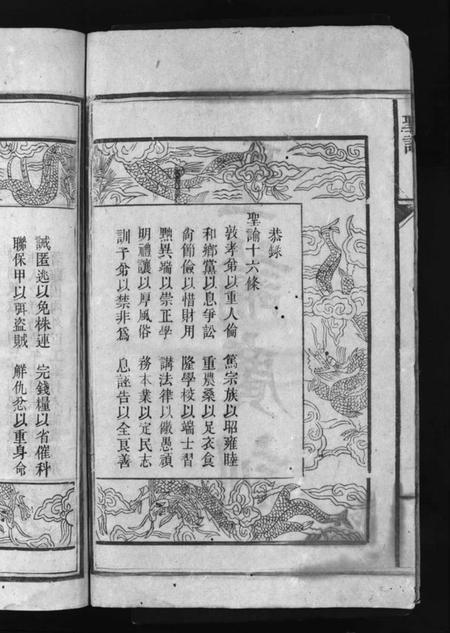 聖諭
恭録
聖諭十六條
敦孝弟以重人倫 篤宗族以昭雍睦
和鄉黨以息爭訟 重農桑以足衣食
尙節儉以惜財用 隆學校以端士習
黜異端以崇正學 講法律以儆愚頑
明禮讓以厚風俗 務本業以定民志
訓子弟以禁非爲 息誣告以全良善
誡匿逃以免株連 完錢糧以省催科
聯保甲以弭盜賊 解仇忿以重身命